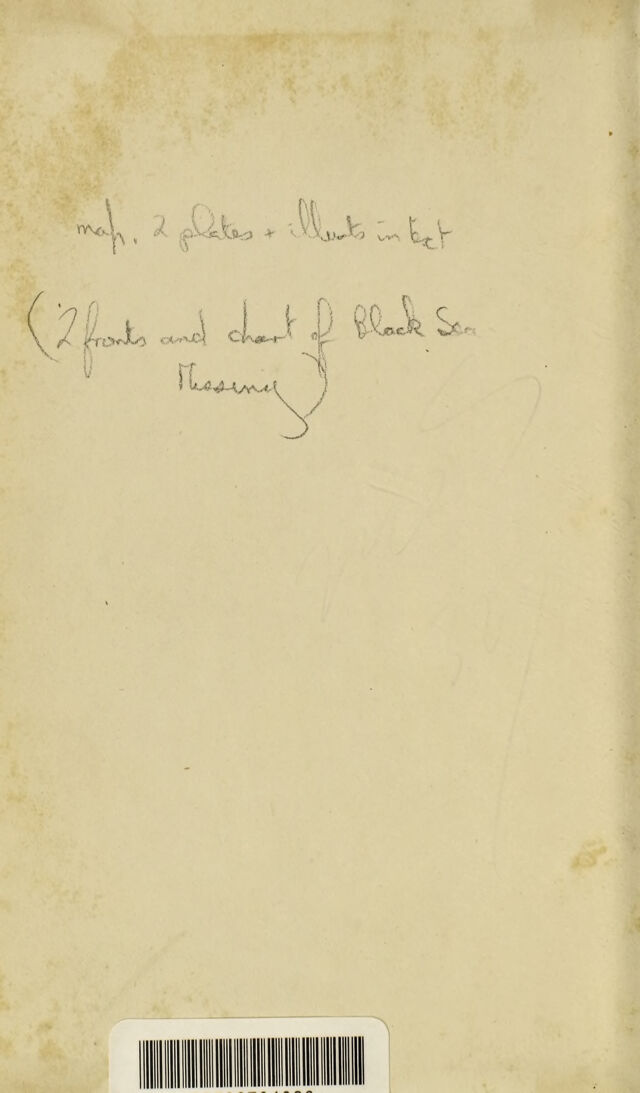 map, 2 plates + illusts in text
(2 fronts and chart of Black Sea
Missing)